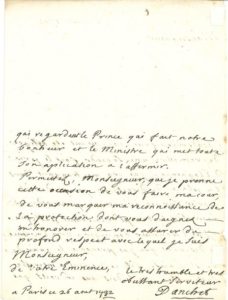 qui regardent le Prince qui fait notre
bonheur et le Ministre qui met toute
son application a l'affermir.
Permettez, Monseigneur, que je prenne
cette occasion de vous faire ma cour
de vous marquer ma reconnoissance de
la protection dont vous daignez
m'honorer et de vous assurer du
profond respect avec lequel je suis
Monseigneur,
de Votre Eminence,
le tres humble et tres
obeissant serviteur
a Paris ce 26 aout
Danchet